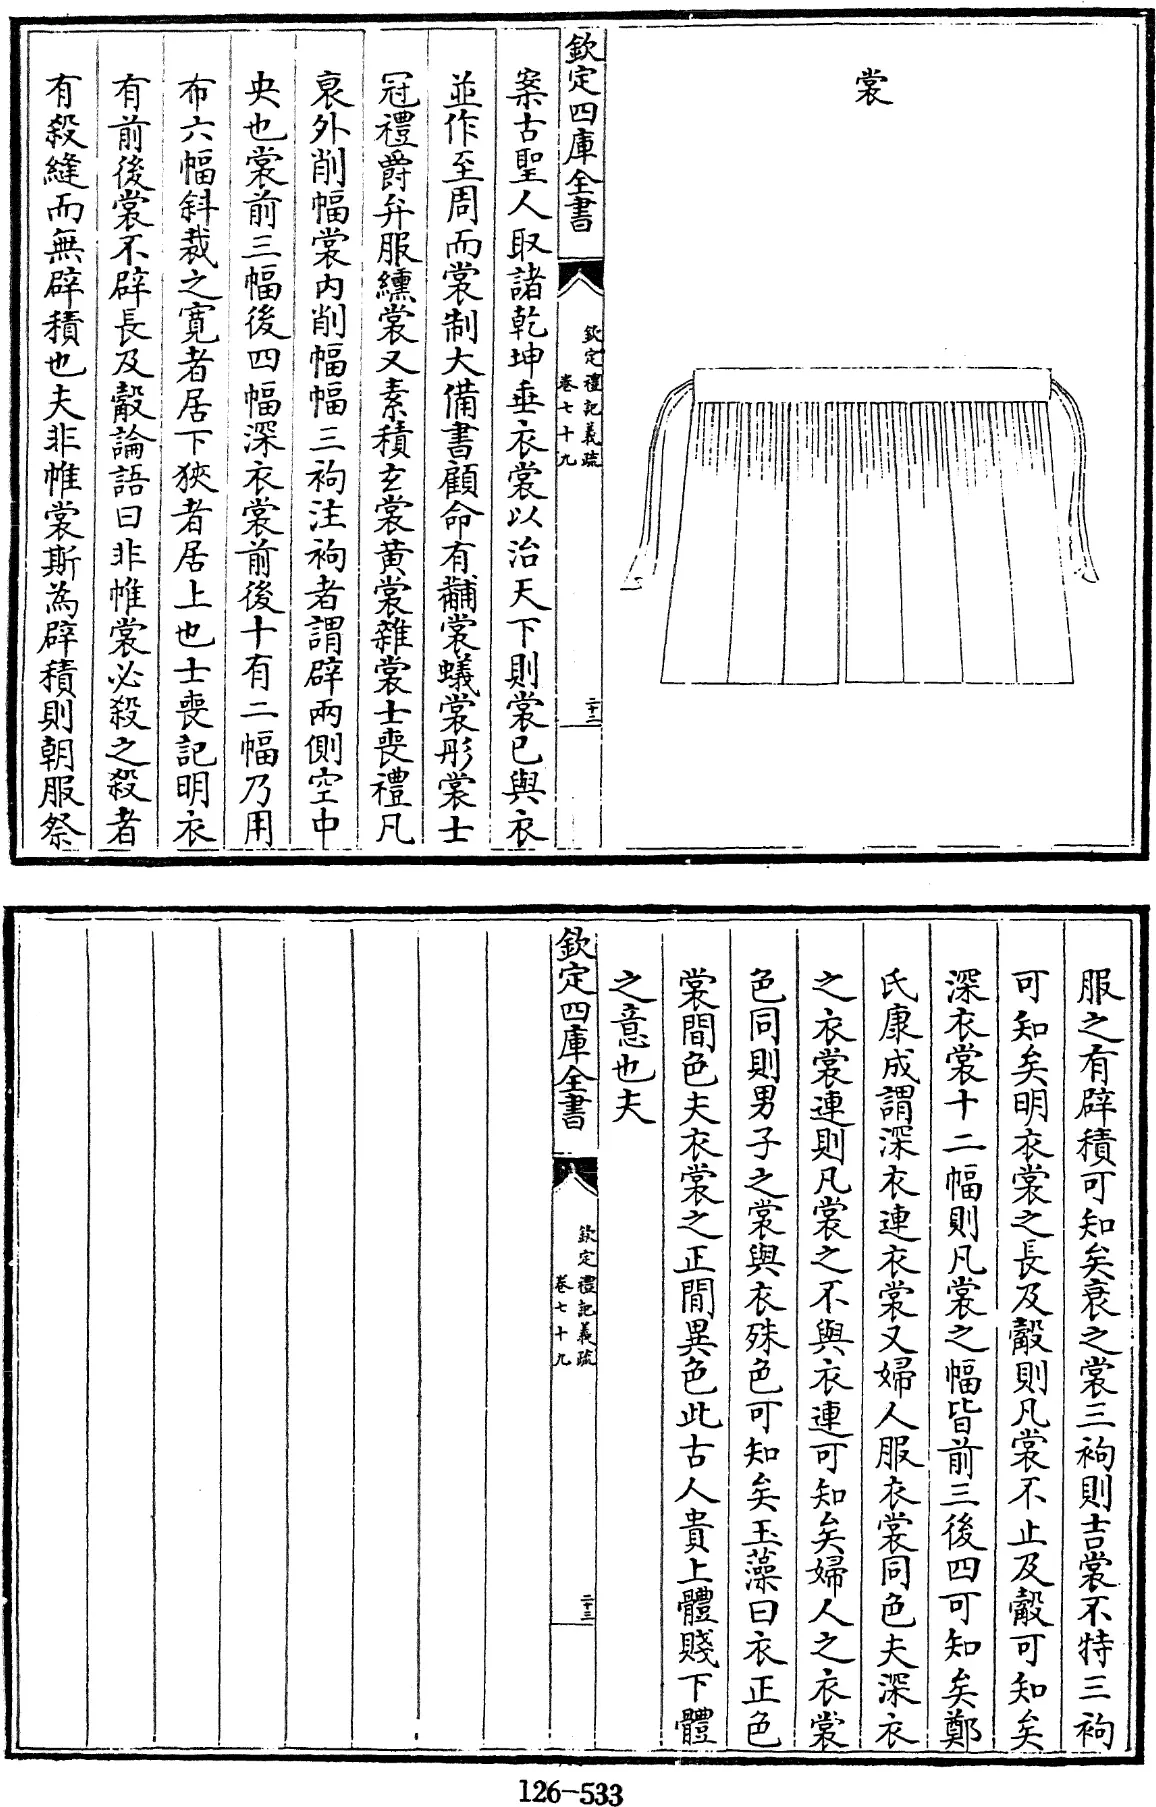 裳
欽定四庫全書
欽定禮記義疏
卷七十九
二十二
案古聖人取諸乾坤垂衣裳以治天下則裳已與衣
並作至周而裳制大備書顧命有黼裳蟻裳彤裳士
冠禮爵弁服纁裳又素積玄裳黄裳雜裳士喪禮凡
衰外削幅裳内削幅幅三袧注袧者謂辟兩側空中
央也裳前三幅後四幅深衣裳前後十有二幅乃用
布六幅斜裁之寛者居下狹者居上也士喪記明衣
有前後裳不辟長及觳論語曰非帷裳必殺之殺者
有殺縫而無辟積也夫非帷裳斯為辟積則朝服祭
服之有辟積可知矣衰之裳三袧則吉裳不特三袧
可知矣明衣裳之長及觳則凡裳不止及觳可知矣
深衣裳十二幅則凡裳之幅皆前三後四可知矣鄭
氏康成謂深衣連衣裳又婦人服衣裳同色夫深衣
之衣裳連則凡裳之不與衣連可知矣婦人之衣裳
色同則男子之裳與衣殊色可知矣玉藻曰衣正色
裳間色夫衣裳之正間異色此古人貴上體賤下體
之意也夫
欽定四庫全書
欽定禮記義疏
卷七十九
二十三
126-533